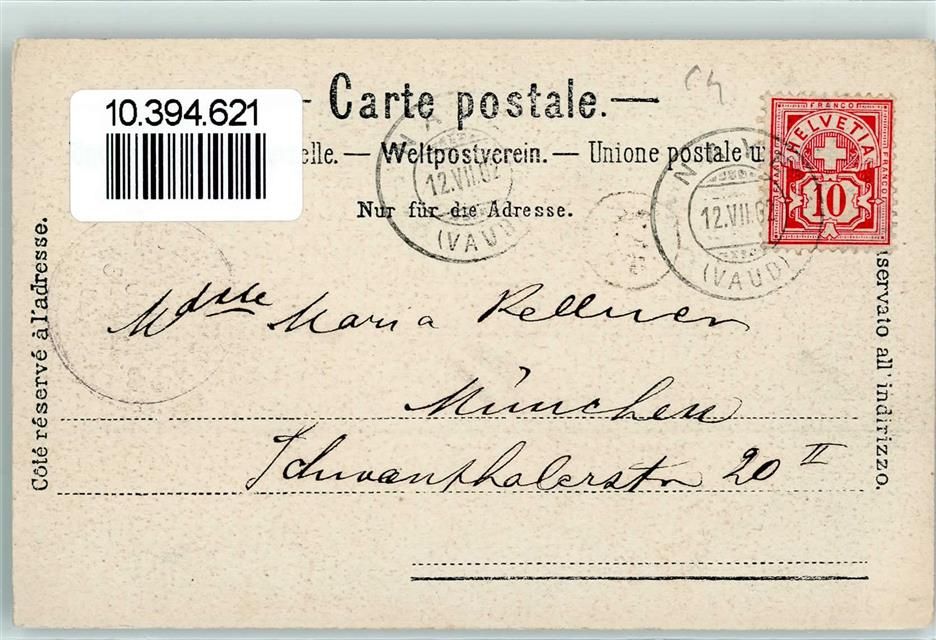 10.394.621
— Carte postale. —
elle. — Weltpostverein. — Unione postale u
Nur für die Adresse.
12.VII.02
(VAUD)
12.VII.0
(VAUD)
FRANCO
HELVETIA
FRANCO
FRANCO
10
Côté réservé à l'adresse.
servato all'indirizzo.
Mdsse Maria Kellner
München
Schwanthalerstr 20 II